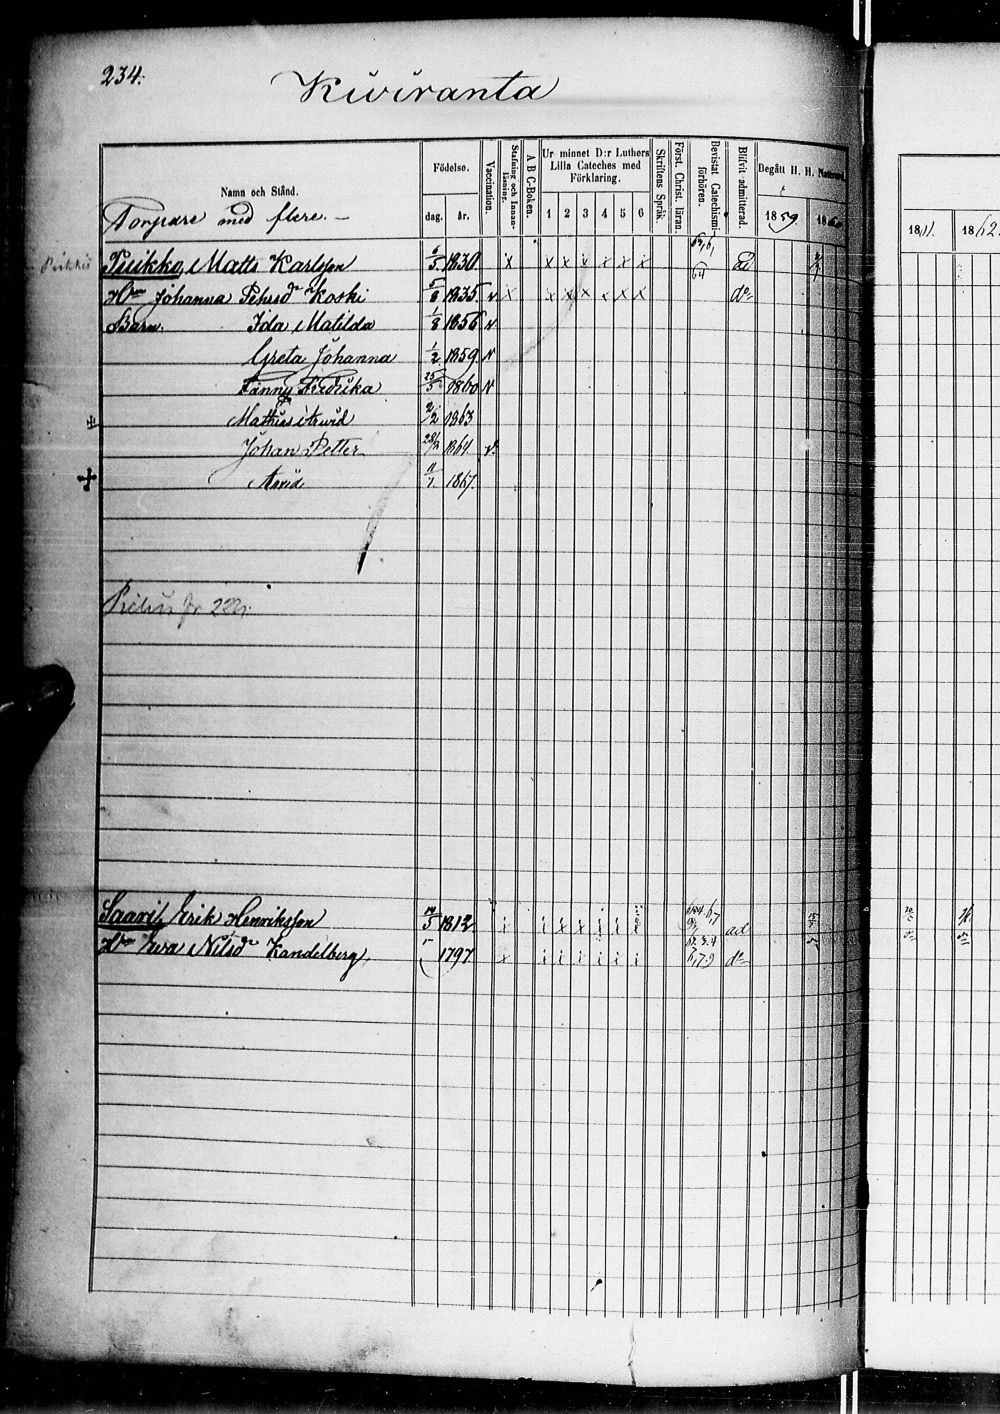 234.
Kiviranta
Namn och Stånd.
Födelse.
dag. år.
Vaccination.
Stafning och Innanläsning.
A B C-Boken.
Ur minnet D:r Luthers Lilla Cateches med Förklaring.
1 2 3 4 5 6
Skriftens Språk.
Först. Christ. läran.
Bevistat Catechismiförhören.
Blifvit admitterad.
Begått H. H. Nattvard.
1859 1860 1861 1862
Torpare med flere. –
Puikko, Matts Karlsson 6/5 1830 x x x x x x x
Hn Johanna Pehrsdr Koski 5/8 1835 v x x x x x x x do
Barn. Ida Matilda 1/8 1856 v
Greta Johanna 1/2 1859 v
Fanny Fredrika 25/5 1860 v
Mathias Arvid 2/2 1863
Johan Petter 1864 v.
Arvid 1867
Saari, Erik Henriksson 1812 ad
Hn Eva Nilsdr Kandelberg, 1797 do